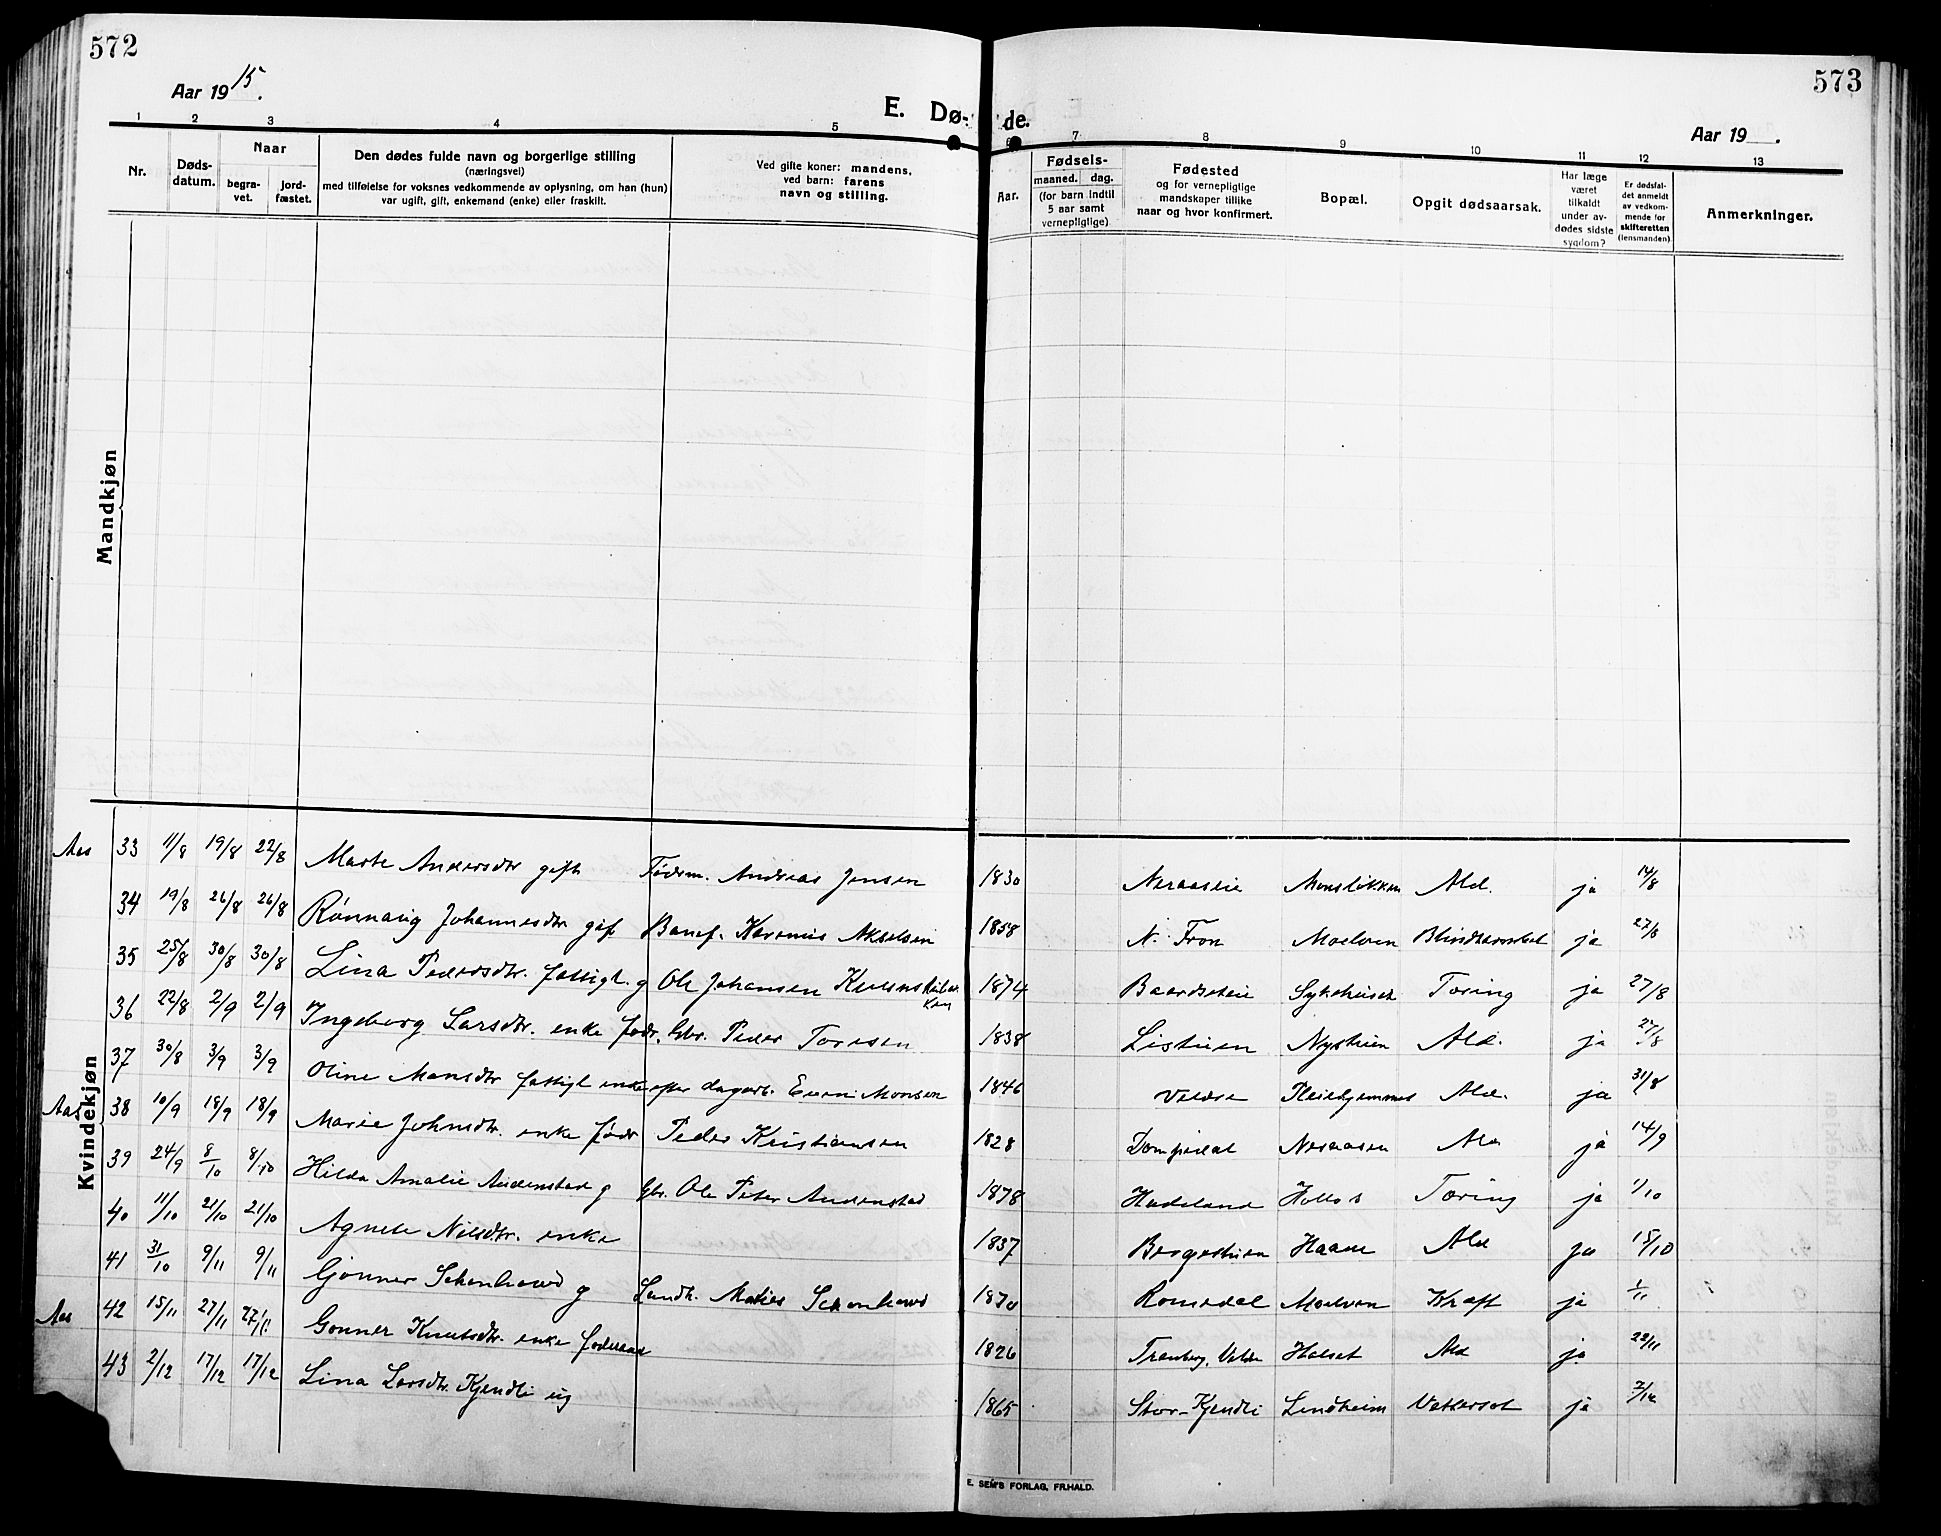 572
573
Aar 1915.
Aar 19 .
E. Dø-
de.
1 2 3 4 5
6 7 8 9 10 11 12 13
Nr.
Døds-
datum.
Naar
begra-
vet.
jord-
fæstet.
Den dødes fulde navn og borgerlige stilling
(næringsvei)
med tilføielse for voksnes vedkommende av oplysning, om han (hun)
var ugift, gift, enkemand (enke) eller fraskilt.
Ved gifte koner: mandens,
ved barn: farens
navn og stilling.
Aar.
Fødsels-
maaned. dag.
(for barn indtil
5 aar samt
vernepligtige)
Fødested
og for vernepligtige
mandskaper tillike
naar og hvor konfirmert.
Bopæl.
Opgit dødsaarsak.
Har læge
været
tilkaldt
under av-
dødes sidste
sygdom?
Er dødsfal-
det anmeldt
av vedkom-
mende for
skifteretten
(lensmanden)
Anmerkninger.
Mandkjøn
Kvindekjøn
Aas 33 11/8 19/8 22/8 Marte Andersdtr gift Fødsm. Andreas Jensen 1830 Neraaseie Monsløkken Ald. ja 14/8
34 19/8 26/8 26/8 Rønnaug Johannesdtr gif. Banef. Karenius Akselsen 1858 N. Fron Moelven ja 27/8
35 25/8 30/8 30/8 Lina Pedersdtr. fattigl. g Ole Johansen 1874 Baardseteie Sykehuset Tæring ja 27/8
36 22/8 2/9 2/9 Ingeborg Larsdtr. enke fødr. Gbr. Peder Toresen 1838 Listuen Nystuen Ald. ja 27/8
37 30/8 3/9 3/9 Oline Monsdtr fattigl enke efter dagarb. Even Monsen 1846 Veldre Pleiehjemmet Ald. ja 31/8
Aas 38 10/9 18/9 18/9 Marie Johnsdtr. enke fødr Peder Kristiansen 1828 Neraasen Ald ja 14/9
39 24/9 8/10 8/10 Hilda Amalie Audenstad g Gbr. Ole Peter Audenstad 1878 Hadeland Tæring ja 1/10
40 11/10 21/10 21/10 Agnete Nilsdtr. enke 1837 Bergestuen Haave Ald ja 15/10
41 31/10 9/11 9/11 Gjønner Schonhowd g Landh. Matias Schonhowd 1870 Romedal Moelven Kræft ja 1/11
Aas 42 15/11 27/11 27/11 Gønner Knutsdtr. enke føderaad 1826 Tranberg, Veldre Holset Ald ja 22/11
43 2/12 17/12 17/12 Lina Larsdtr. Kjendli ug 1865 Stor-Kjendli Lindheim Vattersot ja 7/12
E. SEM'S FORLAG, FR.HALD.